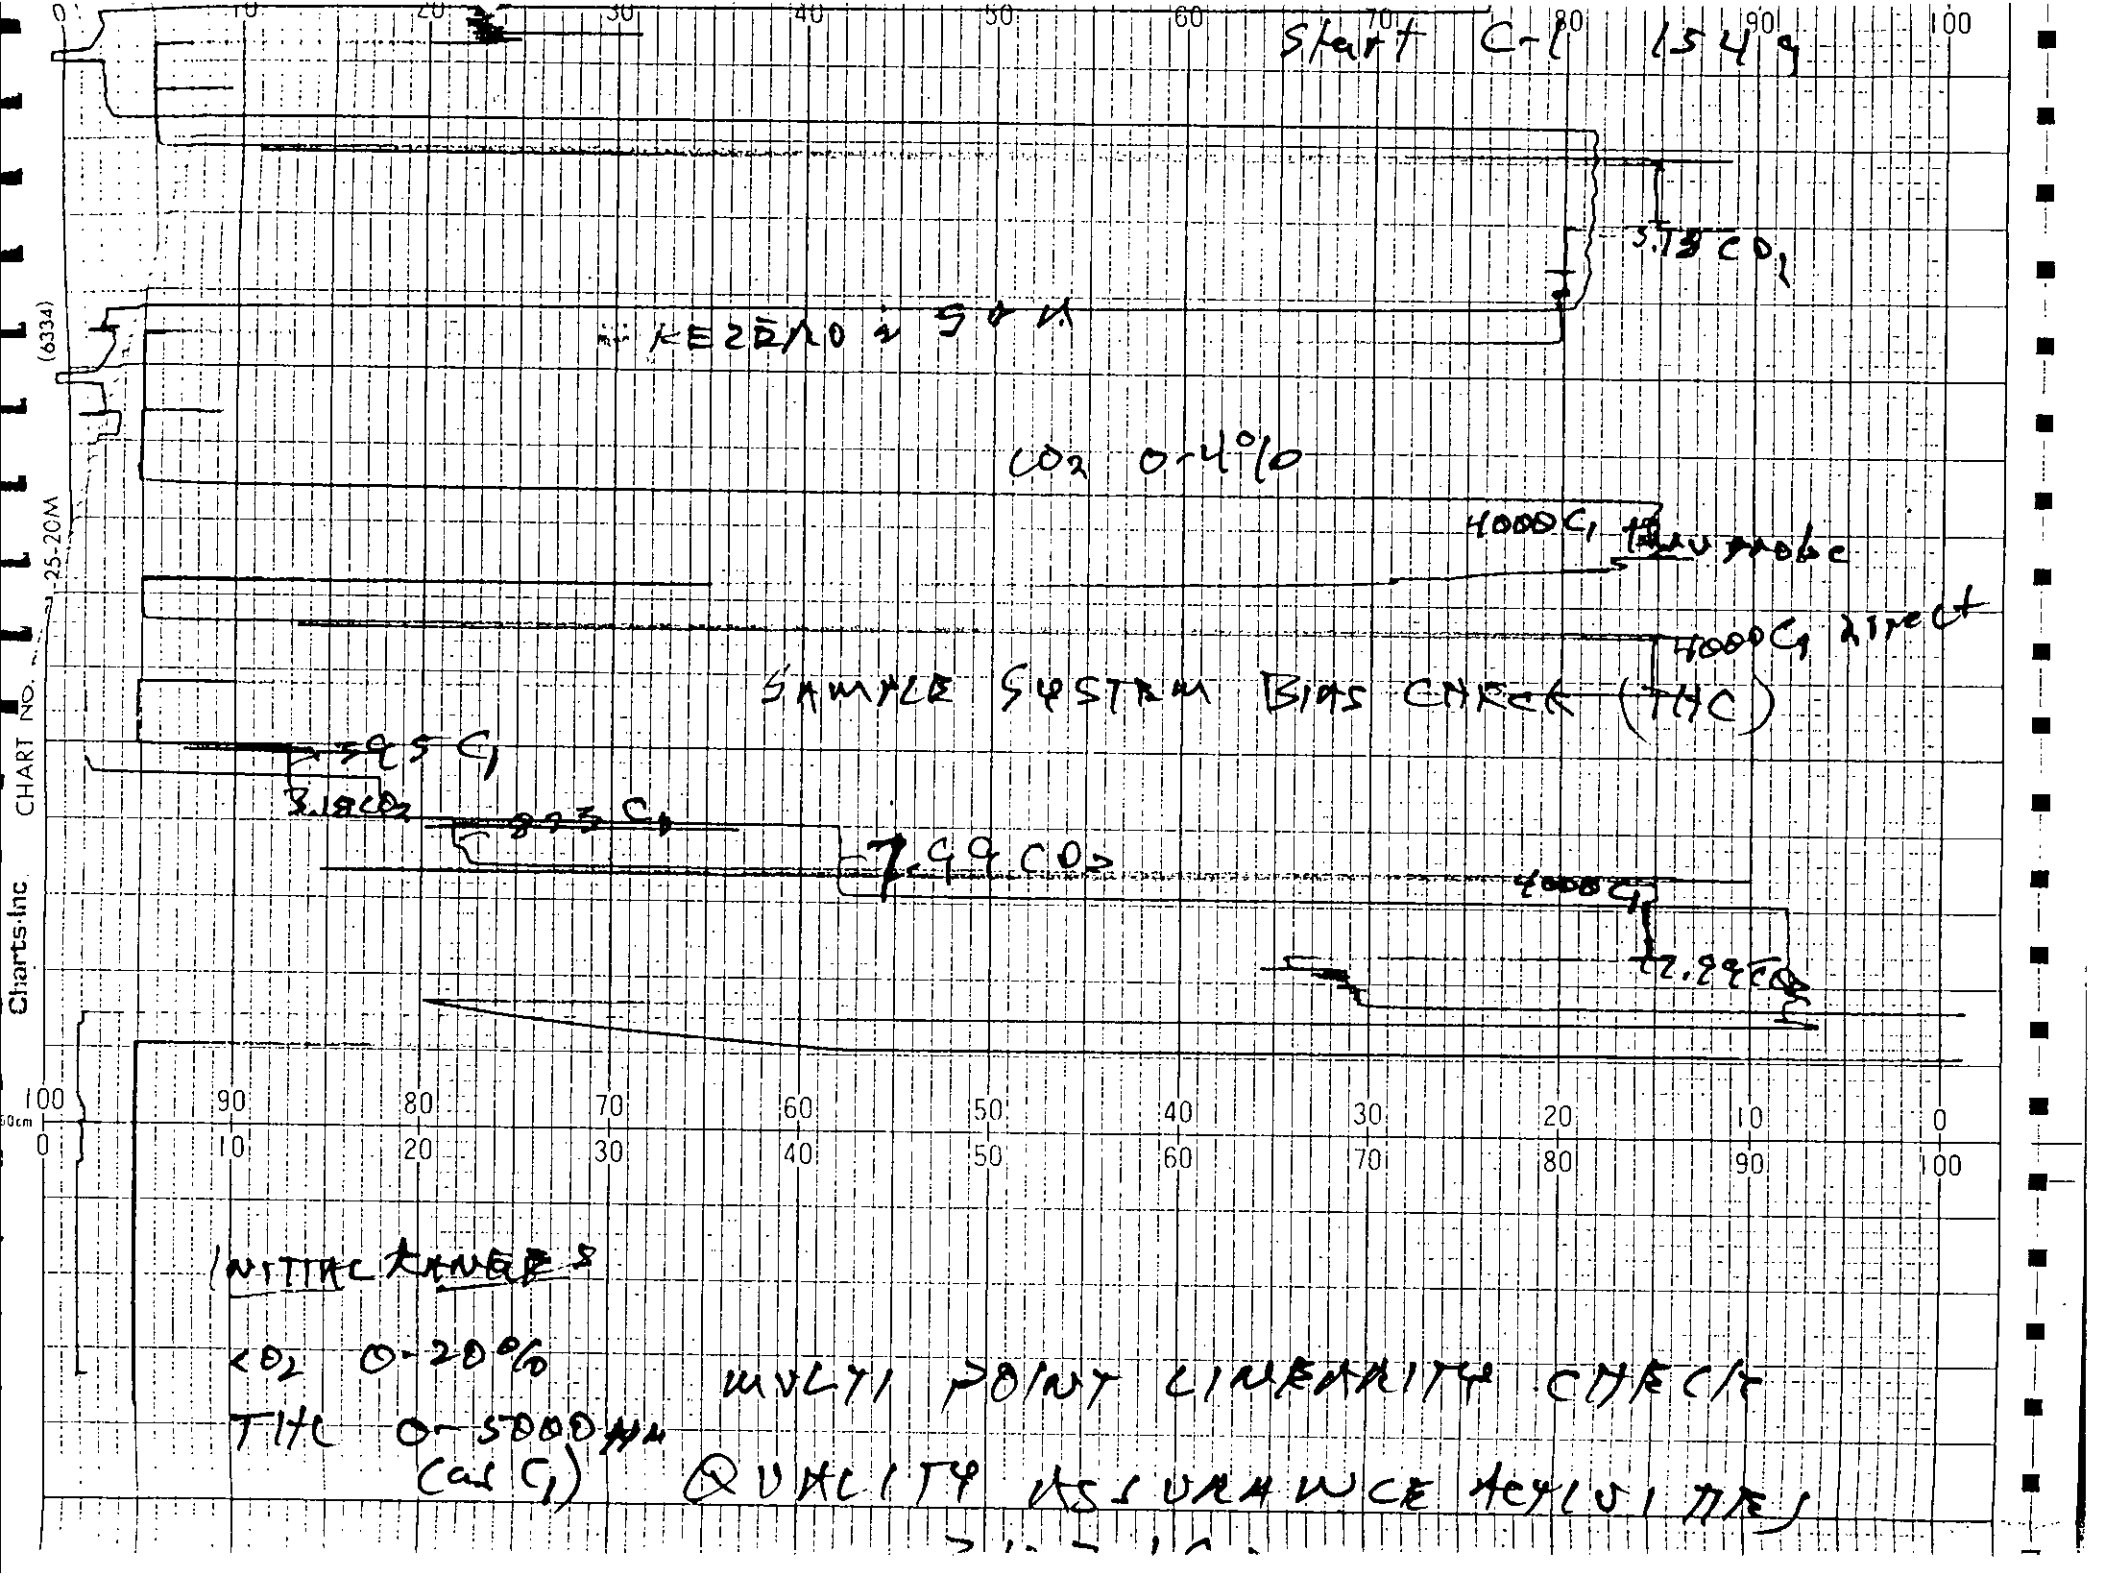 0 10 20 30 40 50 60 70 80 90 100
Start C-1 1549
3.18 CO2
REZERO & SPAN
(6334)
CO2 0-4%
4000 C1 thru probe
25-20M
4000 C1 direct
SAMPLE SYSTEM BIAS CHECK (THC)
CHART NO.
395 C1
3.18 CO2
823 C1
7.99 CO2
4000 C1
Charts, Inc.
100 90 80 70 60 50 40 30 20 10 0
50cm
0 10 20 30 40 50 60 70 80 90 100
INITIAL RANGES
CO2 0-20%
MULTI POINT LINEARITY CHECK
THC 0-5000 PPM
(as C1)
QUALITY ASSURANCE ACTIVITIES